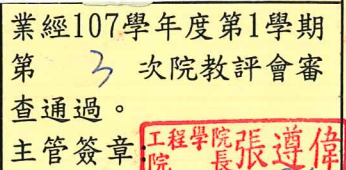 業經107學年度第1學期
第 3 次院教評會審
查通過。
主管簽章:
工程學院院長張遵偉